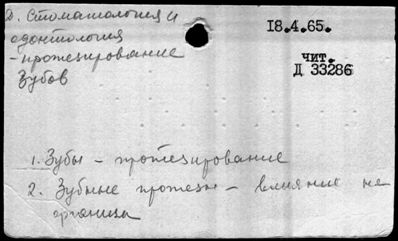 Д. Стоматология и
одонтология
- протезирование
зубов
18.4.65.
чит.
Д 33286
1. Зубы - протезирование
2. Зубные протезы - влияние на
организм